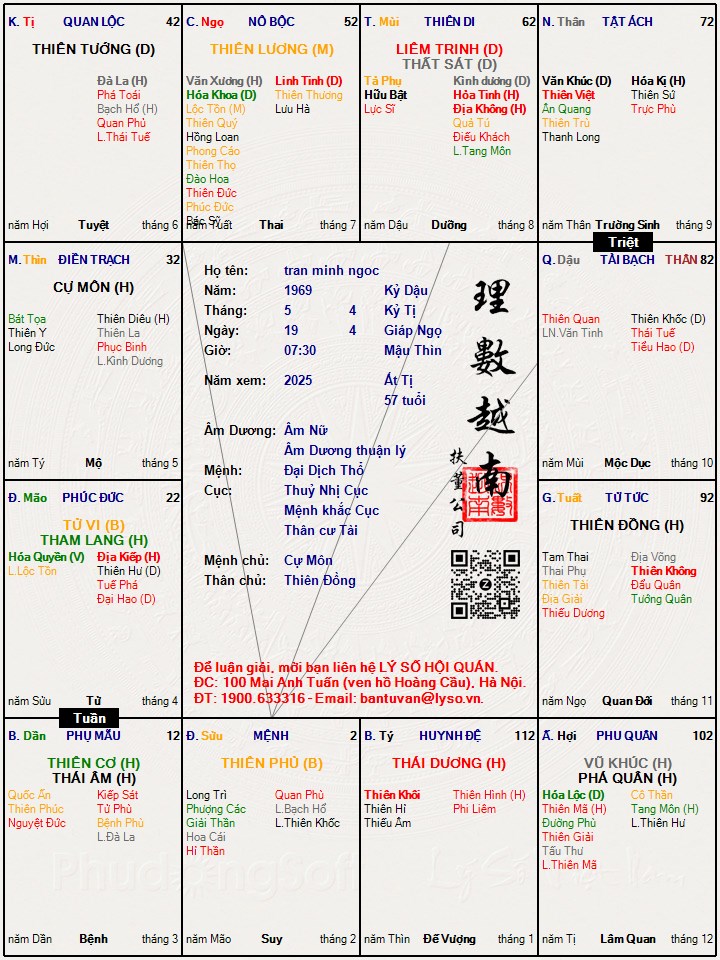 K. Tị QUAN LỘC 42
THIÊN TƯỚNG (D)
Đà La (H)
Phá Toái
Bạch Hổ (H)
Quan Phủ
L.Thái Tuế
năm Hợi Tuyệt tháng 6
C. Ngọ NÔ BỘC 52
THIÊN LƯƠNG (M)
Văn Xương (H) Linh Tinh (D)
Hóa Khoa (D) Thiên Thương
Lộc Tồn (M) Lưu Hà
Thiên Quý
Hồng Loan
Phong Cáo
Thiên Thọ
Đào Hoa
Thiên Đức
Phúc Đức
Bác Sỹ
năm Tuất Thai tháng 7
T. Mùi THIÊN DI 62
LIÊM TRINH (D)
THẤT SÁT (D)
Tả Phụ Kình dương (D)
Hữu Bật Hỏa Tinh (H)
Lực Sĩ Địa Không (H)
Quả Tú
Điếu Khách
L.Tang Môn
năm Dậu Dưỡng tháng 8
N. Thân TẬT ÁCH 72
Văn Khúc (D) Hóa Kị (H)
Thiên Việt Thiên Sứ
Ân Quang Trực Phù
Thiên Trù
Thanh Long
năm Thân Trường Sinh tháng 9
Triệt
M. Thìn ĐIỀN TRẠCH 32
CỰ MÔN (H)
Bát Tọa Thiên Diêu (H)
Thiên Y Thiên La
Long Đức Phục Binh
L.Kình Dương
năm Tý Mộ tháng 5
Họ tên: tran minh ngoc
Năm: 1969 Kỷ Dậu
Tháng: 5 4 Kỷ Tị
Ngày: 19 4 Giáp Ngọ
Giờ: 07:30 Mậu Thìn
Năm xem: 2025 Ất Tị
57 tuổi
Âm Dương: Âm Nữ
Âm Dương thuận lý
Mệnh: Đại Dịch Thổ
Cục: Thuỷ Nhị Cục
Mệnh khắc Cục
Thân cư Tài
Mệnh chủ: Cự Môn
Thân chủ: Thiên Đồng
理數越南
扶董公司
Để luận giải, mời bạn liên hệ LÝ SỐ HỘI QUÁN.
ĐC: 100 Mai Anh Tuấn (ven hồ Hoàng Cầu), Hà Nội.
ĐT: 1900.633316 - Email: bantuvan@lyso.vn.
Q. Dậu TÀI BẠCH THÂN 82
Thiên Quan Thiên Khốc (D)
LN.Văn Tinh Thái Tuế
Tiểu Hao (D)
năm Mùi Mộc Dục tháng 10
Đ. Mão PHÚC ĐỨC 22
TỬ VI (B)
THAM LANG (H)
Hóa Quyền (V) Địa Kiếp (H)
L.Lộc Tồn Thiên Hư (D)
Tuế Phá
Đại Hao (D)
năm Sửu Tử tháng 4
G. Tuất TỬ TỨC 92
THIÊN ĐỒNG (H)
Tam Thai Địa Võng
Thai Phụ Thiên Không
Thiên Tài Đẩu Quân
Địa Giải Tướng Quân
Thiếu Dương
năm Ngọ Quan Đới tháng 11
Tuần
B. Dần PHỤ MẪU 12
THIÊN CƠ (H)
THÁI ÂM (H)
Quốc Ấn Kiếp Sát
Thiên Phúc Tử Phù
Nguyệt Đức Bệnh Phù
L.Đà La
năm Dần Bệnh tháng 3
Đ. Sửu MỆNH 2
THIÊN PHỦ (B)
Long Trì Quan Phù
Phượng Các L.Bạch Hổ
Giải Thần L.Thiên Khốc
Hoa Cái
Hỉ Thần
năm Mão Suy tháng 2
B. Tý HUYNH ĐỆ 112
THÁI DƯƠNG (H)
Thiên Khôi Thiên Hình (H)
Thiên Hỉ Phi Liêm
Thiếu Âm
năm Thìn Đế Vượng tháng 1
Ấ. Hợi PHU QUÂN 102
VŨ KHÚC (H)
PHÁ QUÂN (H)
Hóa Lộc (D) Cô Thần
Thiên Mã (H) Tang Môn (H)
Đường Phù L.Thiên Hư
Thiên Giải
Tấu Thư
L.Thiên Mã
năm Tị Lâm Quan tháng 12